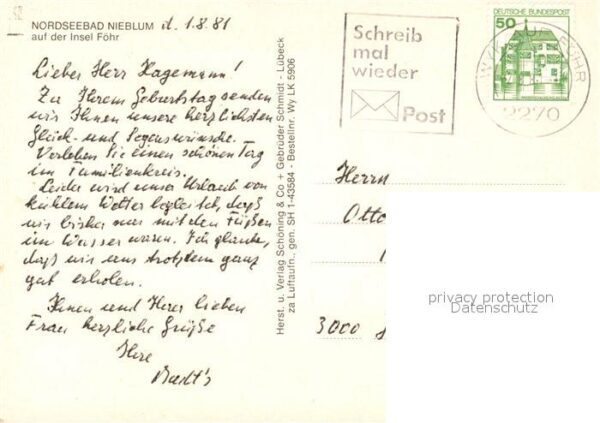 NORDSEEBAD NIEBLUM d. 1.8.81
auf der Insel Föhr
Lieber Herr Hagemann!
Zu Ihrem Geburtstag senden
wir Ihnen unsere herzlichsten
Glück- und Segenswünsche.
Verleben Sie einen schönen Tag
im Familienkreis.
Leider wird unser Urlaub von
kühlem Wetter begleitet, daß
wir bisher nur mit den Füßen
im Wasser waren. Ich glaube,
daß wir uns trotzdem ganz
gut erholen.
Ihnen und Ihrer lieben
Frau herzliche Grüße
Ihre
Herst. u. Verlag Schöning & Co + Gebrüder Schmidt - Lübeck
za Luftaufn., gen. SH 1-43584 - Bestellnr. Wy LK 5906
Schreib
mal
wieder
Post
DEUTSCHE BUNDESPOST
50
WYK AUF FÖHR
2270
Herrn
Otto
3000
privacy protection
Datenschutz